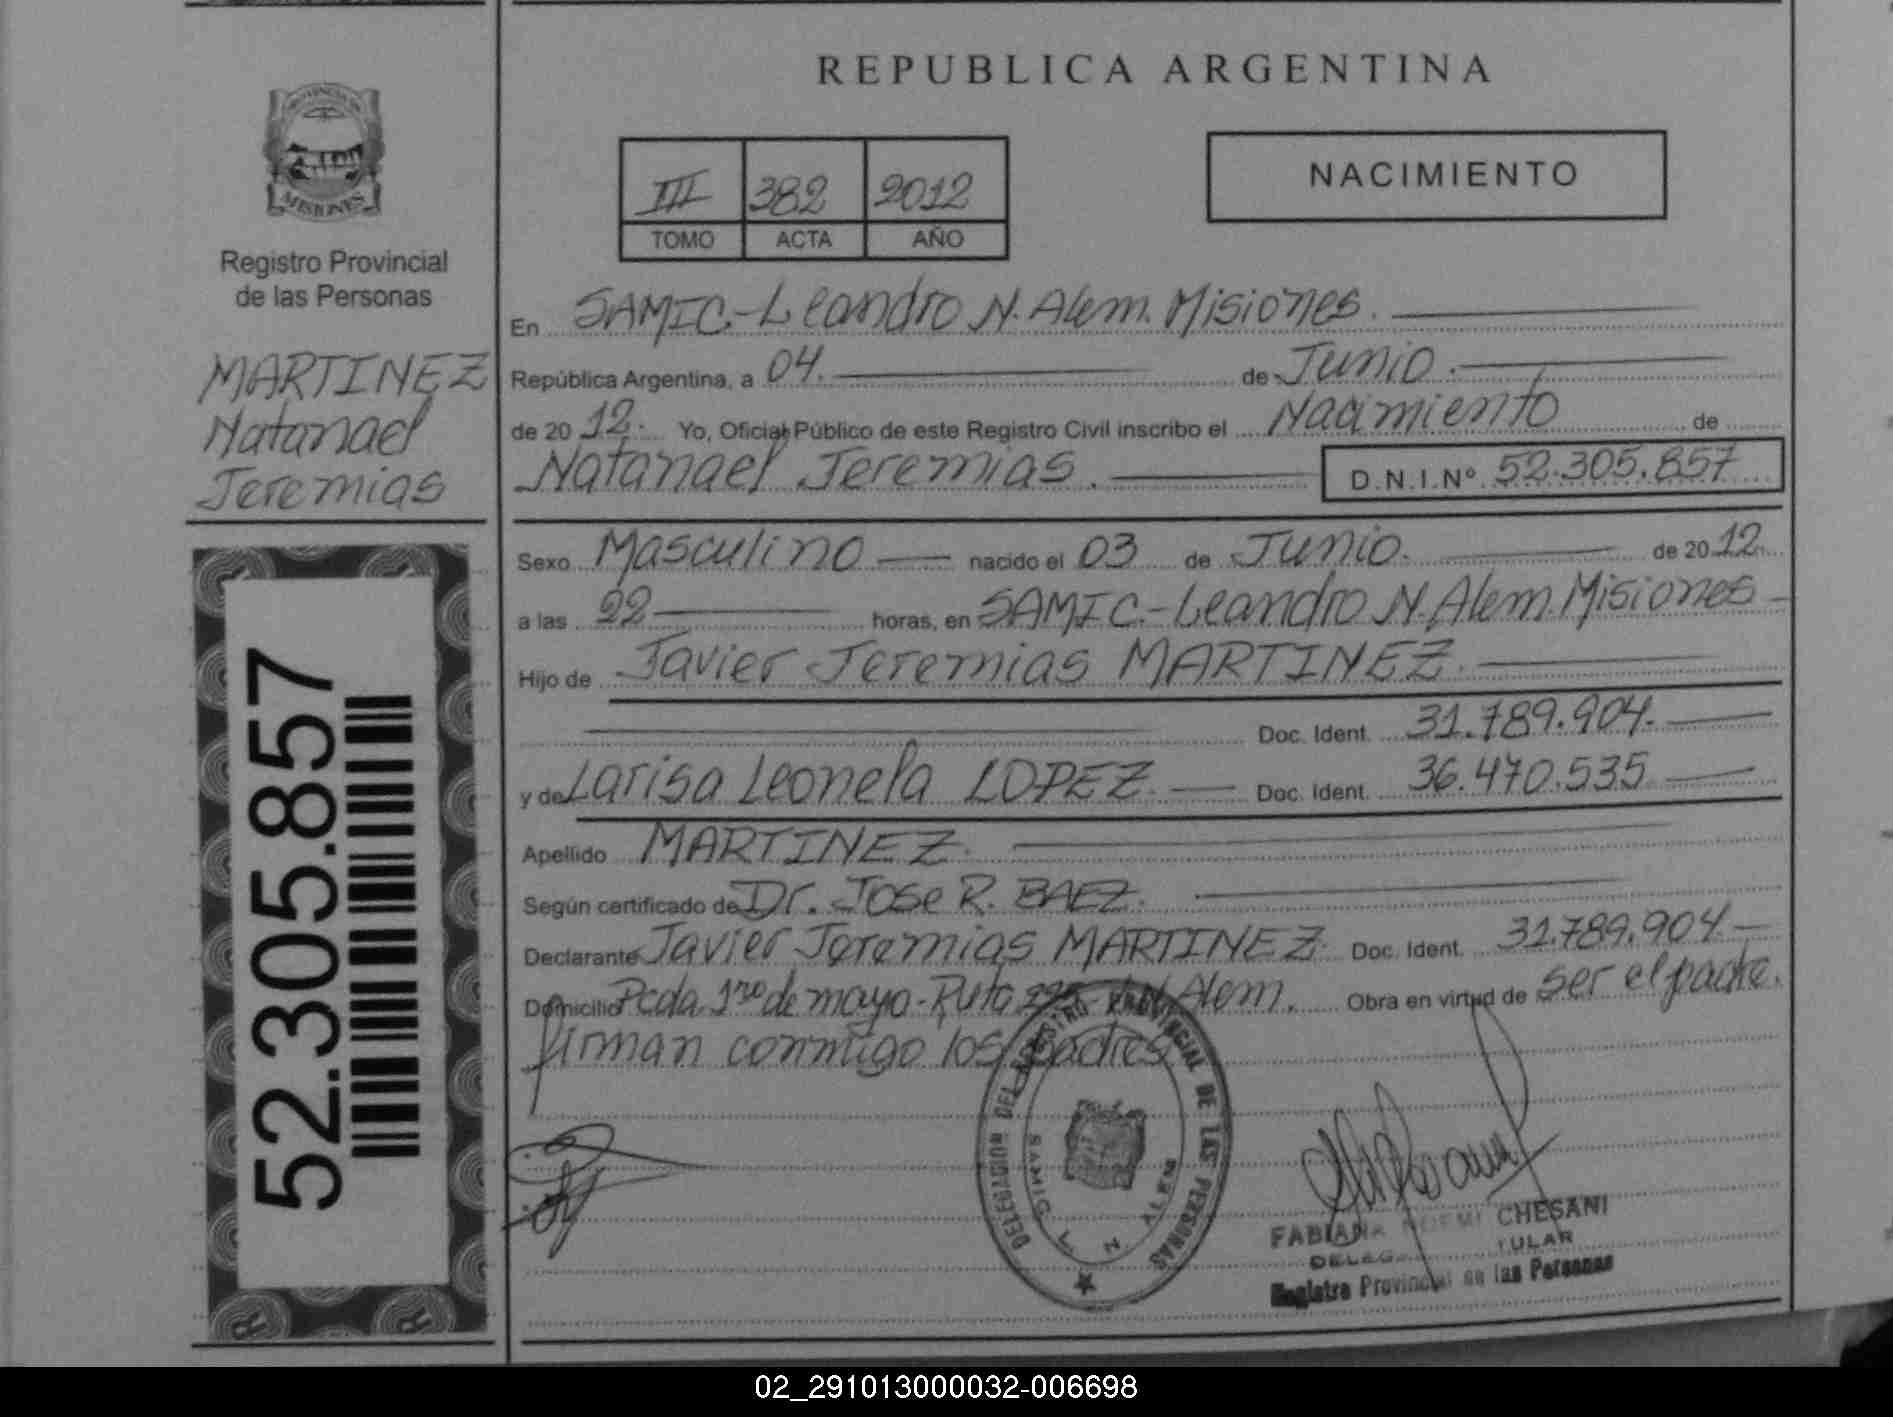 REPUBLICA ARGENTINA
PROVINCIA DE
MISIONES
Registro Provincial
de las Personas
MARTINEZ
Natanael
Jeremias
52.305.857
III 382 2012
TOMO ACTA AÑO
NACIMIENTO
En SAMIC-Leandro N. Alem. Misiones.
República Argentina, a 04. de Junio.
de 20 12. Yo, Oficial Público de este Registro Civil inscribo el Nacimiento de
Natanael Jeremias. D.N.I.Nº 52.305.857
Sexo Masculino nacido el 03 de Junio. de 20 12.
a las 22 horas, en SAMIC-Leandro N. Alem. Misiones
Hijo de Javier Jeremias MARTINEZ.
Doc. Ident. 31.789.904.
y de Larisa Leonela LOPEZ. Doc. Ident. 36.470.535
Apellido MARTINEZ.
Según certificado de Dr. Jose R. BAEZ.
Declarante Javier Jeremias MARTINEZ. Doc. Ident. 31.789.904
Domicilio Pcda. 1ro de mayo-Ruta L.N. Alem. Obra en virtud de ser el padre.
firman conmigo los padres
DELEGACION DEL REGISTRO PROVINCIAL DE LAS PERSONAS
SAMIC L N ALEM
FABIANA NOEMI CHESANI
Registro Provincial de las Personas
02_291013000032-006698